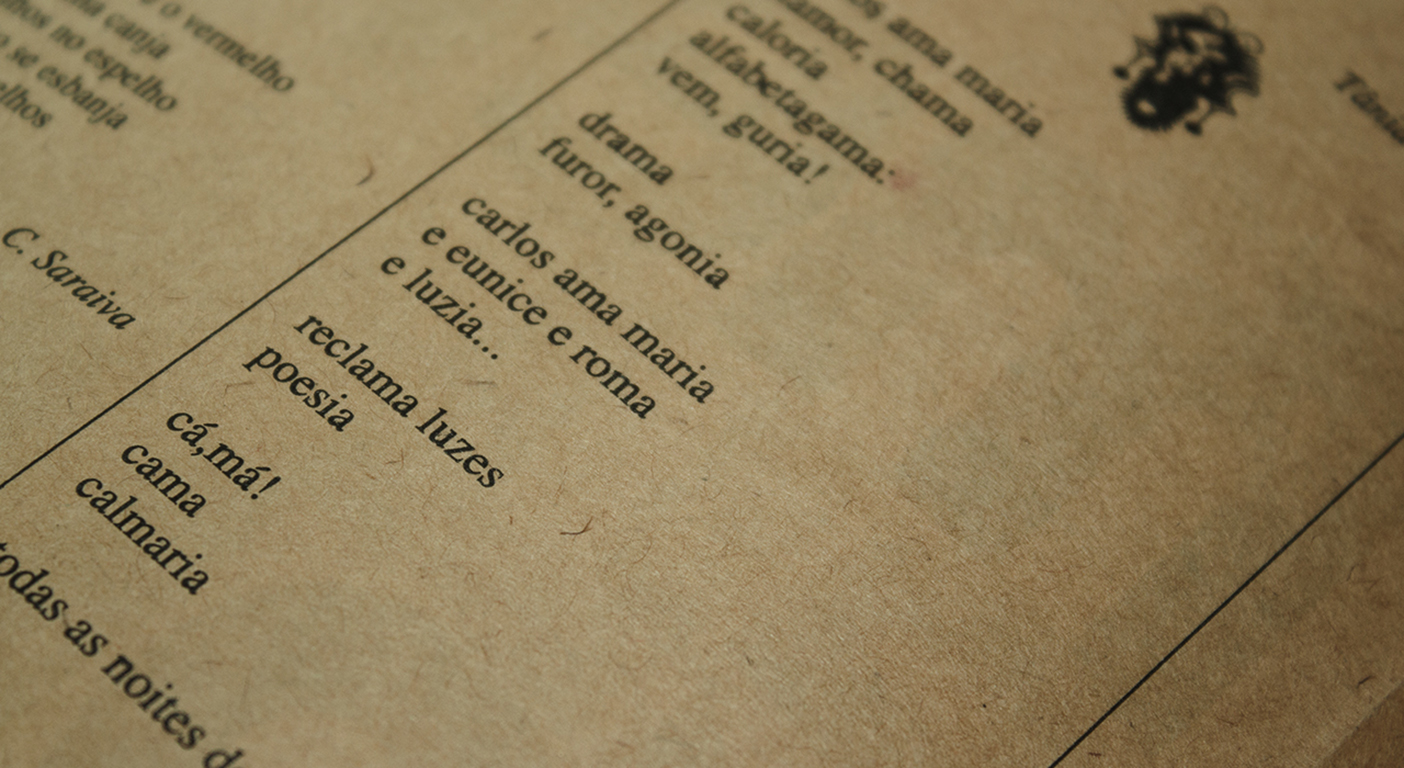 o vermelho
canja
no espelho
se esbanja
C. Saraiva
ama maria
amor, chama
caloria
alfabetagama:
vem, guria!
drama
furor, agonia
carlos ama maria
e eunice e roma
e luzia...
reclama luzes
poesia
cá,má!
cama
calmaria
todas as noites